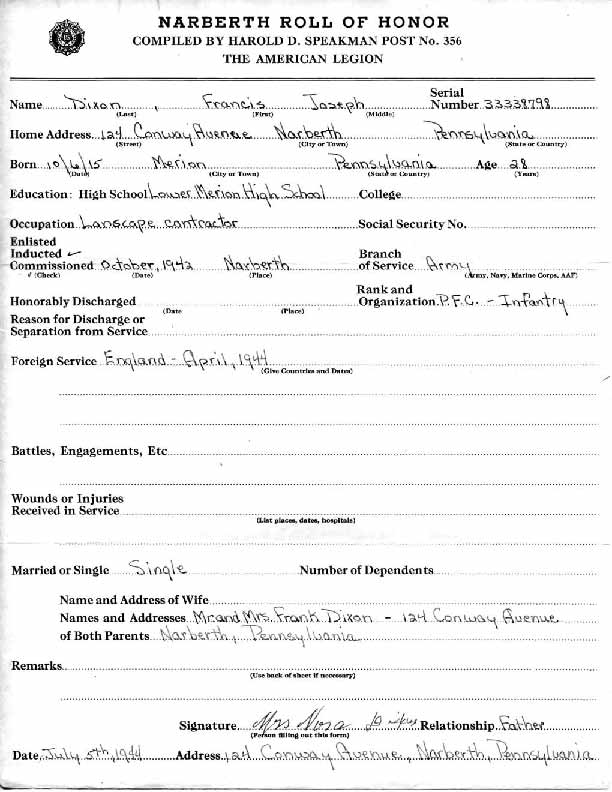 NARBERTH ROLL OF HONOR
COMPILED BY HAROLD D. SPEAKMAN POST No. 356
THE AMERICAN LEGION
Serial
Name Dixon, Francis Joseph Number 33338798
(Last) (First) (Middle)
Home Address 124 Conway Avenue Narberth Pennsylvania
(Street) (City or Town) (State or Country)
Born 10/6/15 Merion Pennsylvania Age 28
(Date) (City or Town) (State or Country) (Years)
Education: High School Lower Merion High School College
Occupation Lanscape contractor Social Security No.
Enlisted
Inducted ✓ Branch
Commissioned October, 1942 Narberth of Service Army
✓ (Check) (Date) (Place) (Army, Navy, Marine Corps, AAF)
Rank and
Honorably Discharged Organization P.F.C. - Infantry
(Date (Place)
Reason for Discharge or
Separation from Service
Foreign Service England - April, 1944
(Give Countries and Dates)
Battles, Engagements, Etc
Wounds or Injuries
Received in Service
(List places, dates, hospitals)
Married or Single Single Number of Dependents
Name and Address of Wife
Names and Addresses Mr. and Mrs. Frank Dixon - 124 Conway Avenue
of Both Parents Narberth, Pennsylvania
Remarks
(Use back of sheet if necessary)
Signature Mrs Nora Dixon Relationship Father
(Person filling out this form)
Date July 5th, 1944 Address 124 Conway Avenue, Narberth, Pennsylvania